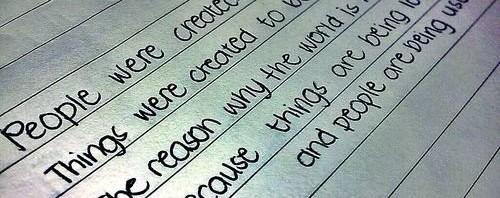 People were created
Things were created to
the reason why the world is
because things are being
and people are being